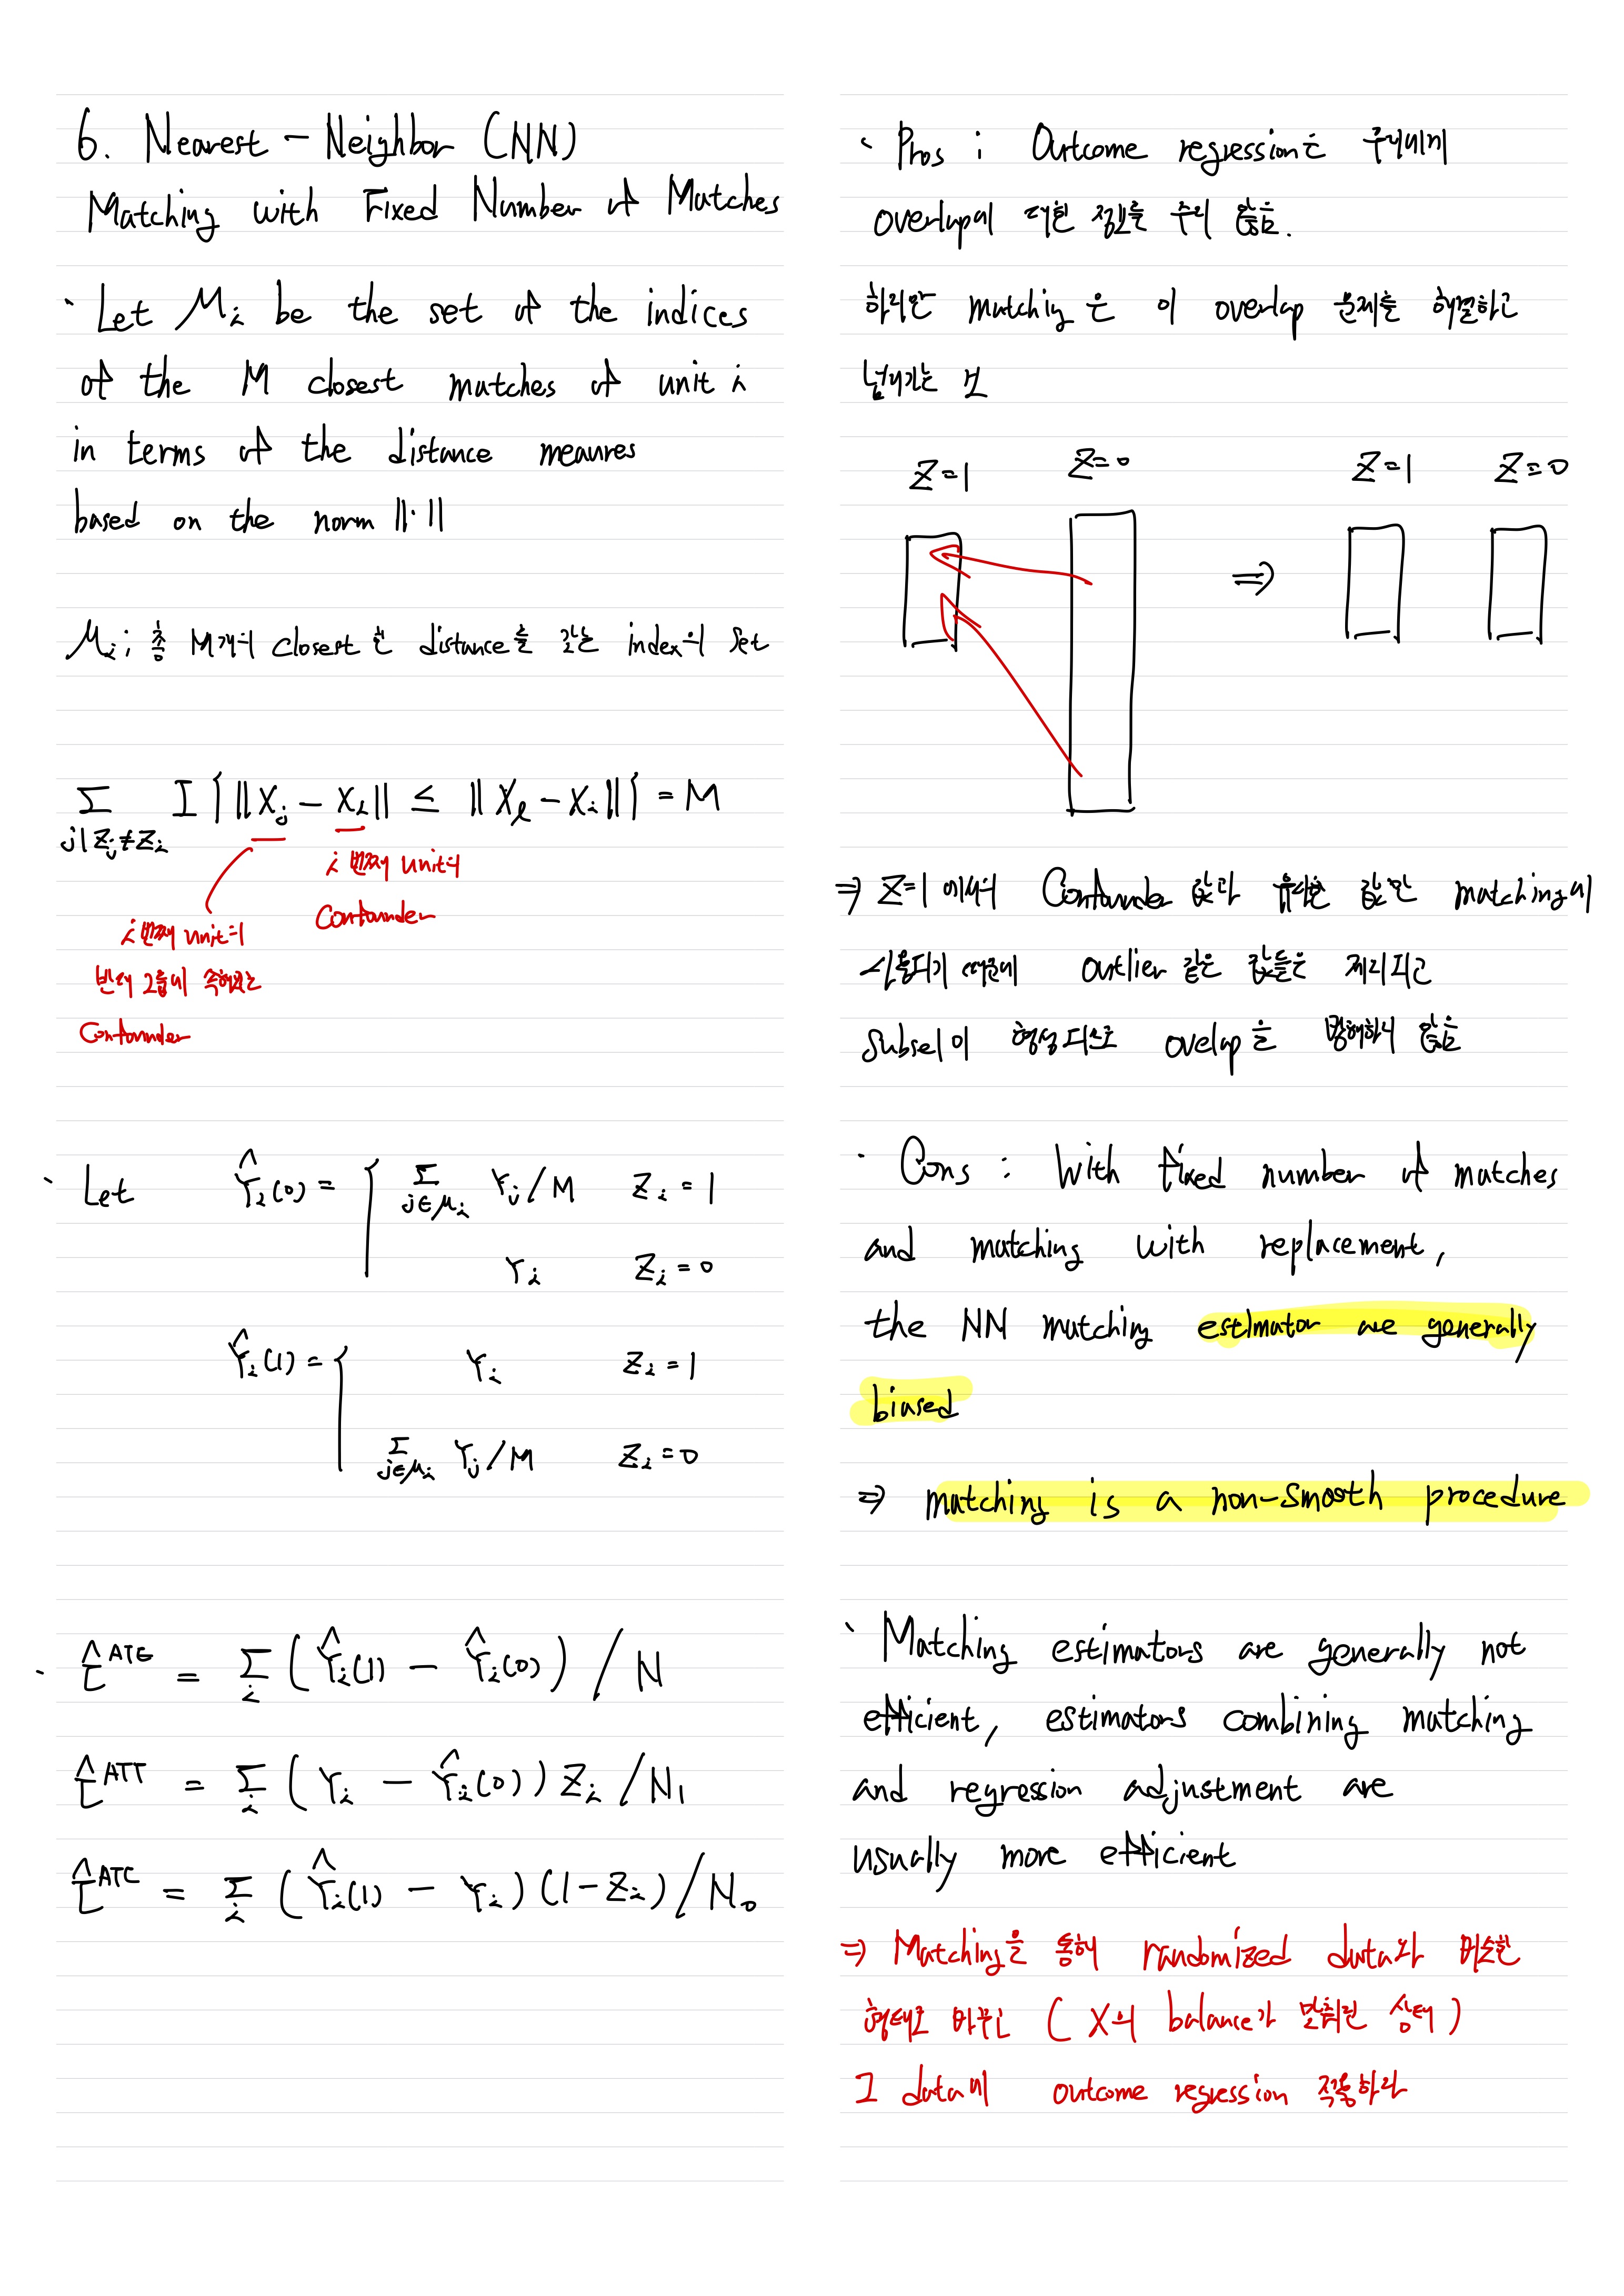 6. Nearest - Neighbor (NN)
Matching with Fixed Number of Matches
· Let Mi be the set of the indices
of the M closest matches of unit i
in terms of the distance meaures
based on the norm ||·||
Mi ; 즉 M개의 closest 한 distance을 갖는 index의 set
Σ I{||Xj - Xi|| ≤ ||Xℓ - Xi||} = M
j|Zj≠Zi
i 번째 unit의
Confounder
i 번째 unit의
반대 그룹에 속해있는
Confounder
· Let Ŷi(0) = { Σ j∈Mi Yj/M Zi = 1
Yi Zi = 0
Ŷi(1) = { Yi Zi = 1
Σ j∈Mi Yj/M Zi = 0
· τ̂^ATE = Σi (Ŷi(1) - Ŷi(0)) / N
τ̂^ATT = Σi (Yi - Ŷi(0)) Zi / N1
τ̂^ATC = Σi (Ŷi(1) - Yi)(1-Zi) / N0
· Pros ; Outcome regression은 우리에게
overlap에 대한 정보를 주지 않음.
하지만 matchig 은 이 overlap 문제를 해결하고
넘어가는 것
Z=1 Z=0 ⇒ Z=1 Z=0
⇒ Z=1 에서 Confounder 값과 유사한 값만 matching에
사용되기 때문에 outlier 같은 값들은 제외되고
Subset이 형성되므로 ovelap을 방해하지 않음
· Cons : With fixed number of matches
and matching with replacement,
the NN matching estimator are generally
biased
⇒ matching is a non-smooth procedure
· Matching estimators are generally not
efficient, estimators combining matching
and regression adjustment are
usually more efficient
⇒ Matching을 통해 randomized data와 비슷한
형태로 바꾼 ( X의 balance가 맞춰진 상태 )
그 data에 outcome regression 적용하라